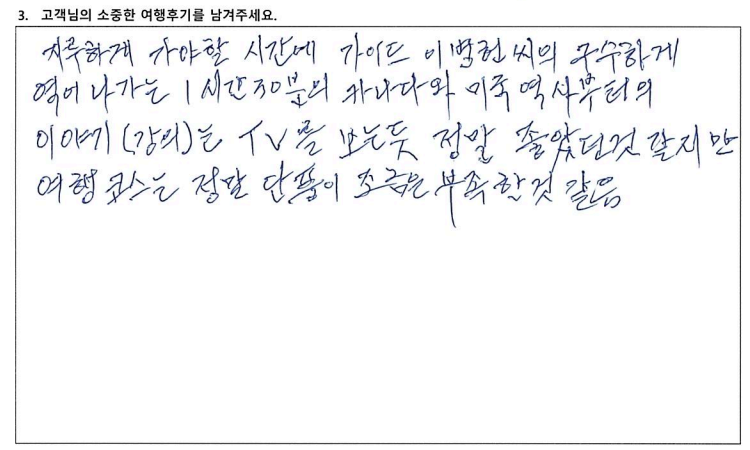 3. 고객님의 소중한 여행후기를 남겨주세요.
지루하게 가야할 시간에 가이드 이병헌씨의 구수하게
엮어 나가는 1시간30분의 카나다와 미국 역사부터의
이야기(강의)는 TV를 보는듯 정말 좋았던것 같지만
여행코스는 정말 단풍이 조금은 부족한것 같음